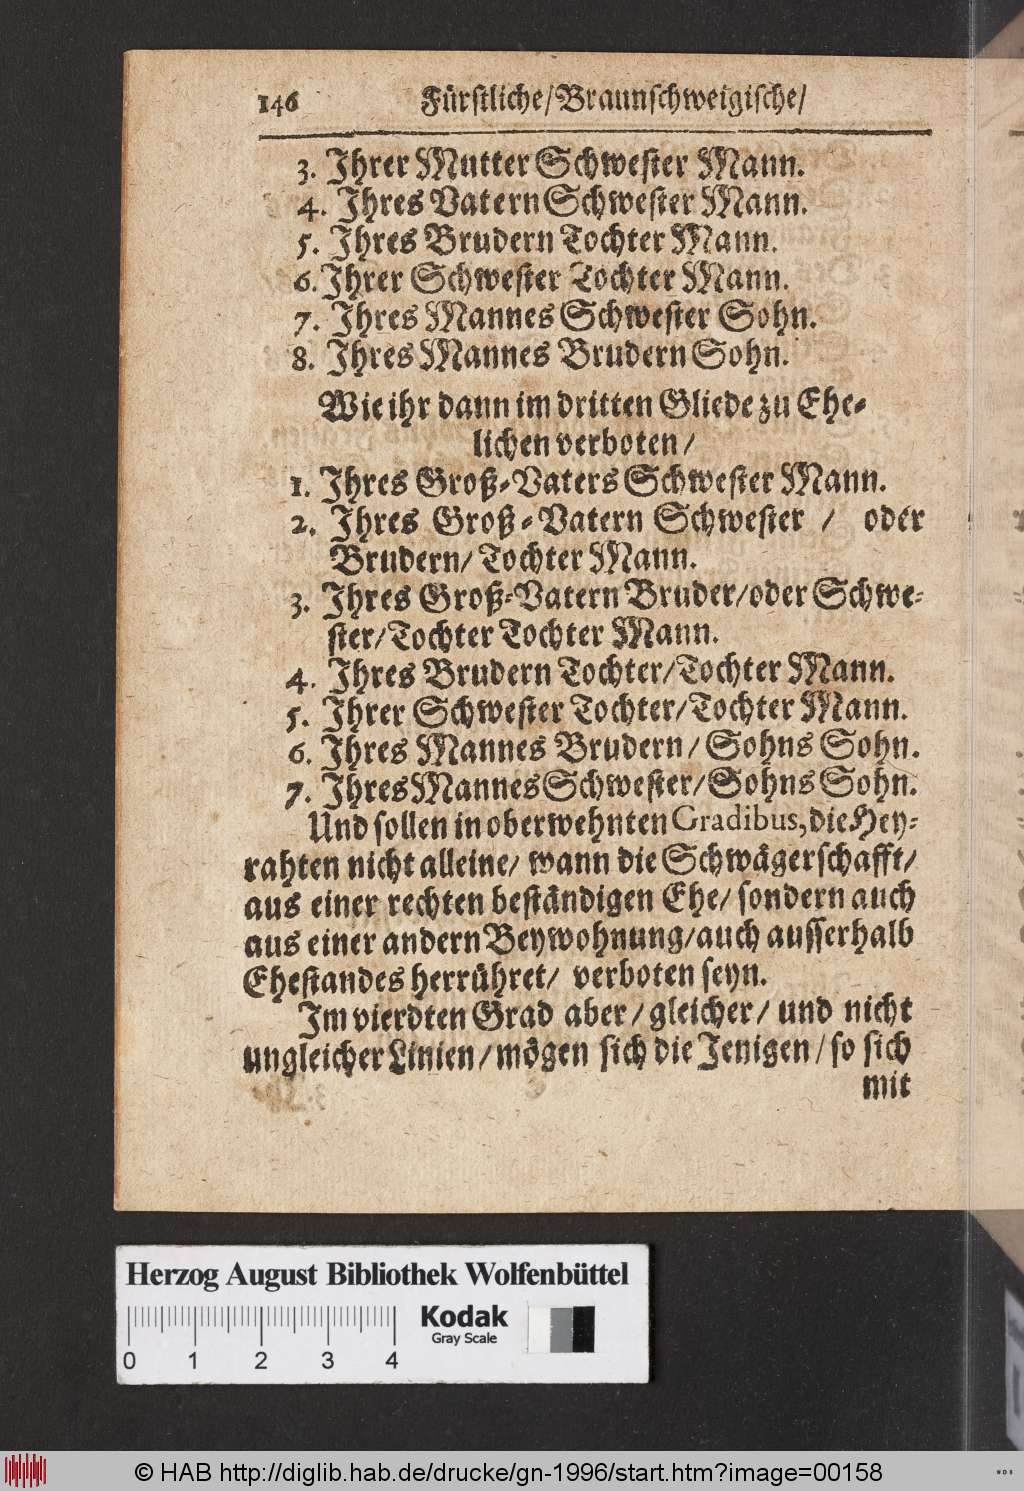 146 Fürstliche/Braunschweigische/
3. Ihrer Mutter Schwester Mann.
4. Ihres Vatern Schwester Mann.
5. Ihres Brudern Tochter Mann.
6. Ihrer Schwester Tochter Mann.
7. Ihres Mannes Schwester Sohn.
8. Ihres Mannes Brudern Sohn.
Wie ihr dann im dritten Gliede zu Ehe-
lichen verboten/
1. Ihres Groß-Vaters Schwester Mann.
2. Ihres Groß-Vatern Schwester / oder
Brudern/ Tochter Mann.
3. Ihres Groß-Vatern Bruder/oder Schwe-
ster/Tochter Tochter Mann.
4. Ihres Brudern Tochter/Tochter Mann.
5. Ihrer Schwester Tochter/Tochter Mann.
6. Ihres Mannes Brudern/ Sohns Sohn.
7. Ihres Mannes Schwester/Sohns Sohn.
Und sollen in oberwehnten Gradibus, die Hey-
rahten nicht alleine/ wann die Schwägerschafft/
aus einer rechten beständigen Ehe/ sondern auch
aus einer andern Beywohnung/auch ausserhalb
Ehestandes herrühret/ verboten seyn.
Im vierdten Grad aber/gleicher/ und nicht
ungleicher Linien/mögen sich die Jenigen/so sich
mit
Herzog August Bibliothek Wolfenbüttel
Kodak
Gray Scale
0 1 2 3 4
© HAB http://diglib.hab.de/drucke/gn-1996/start.htm?image=00158